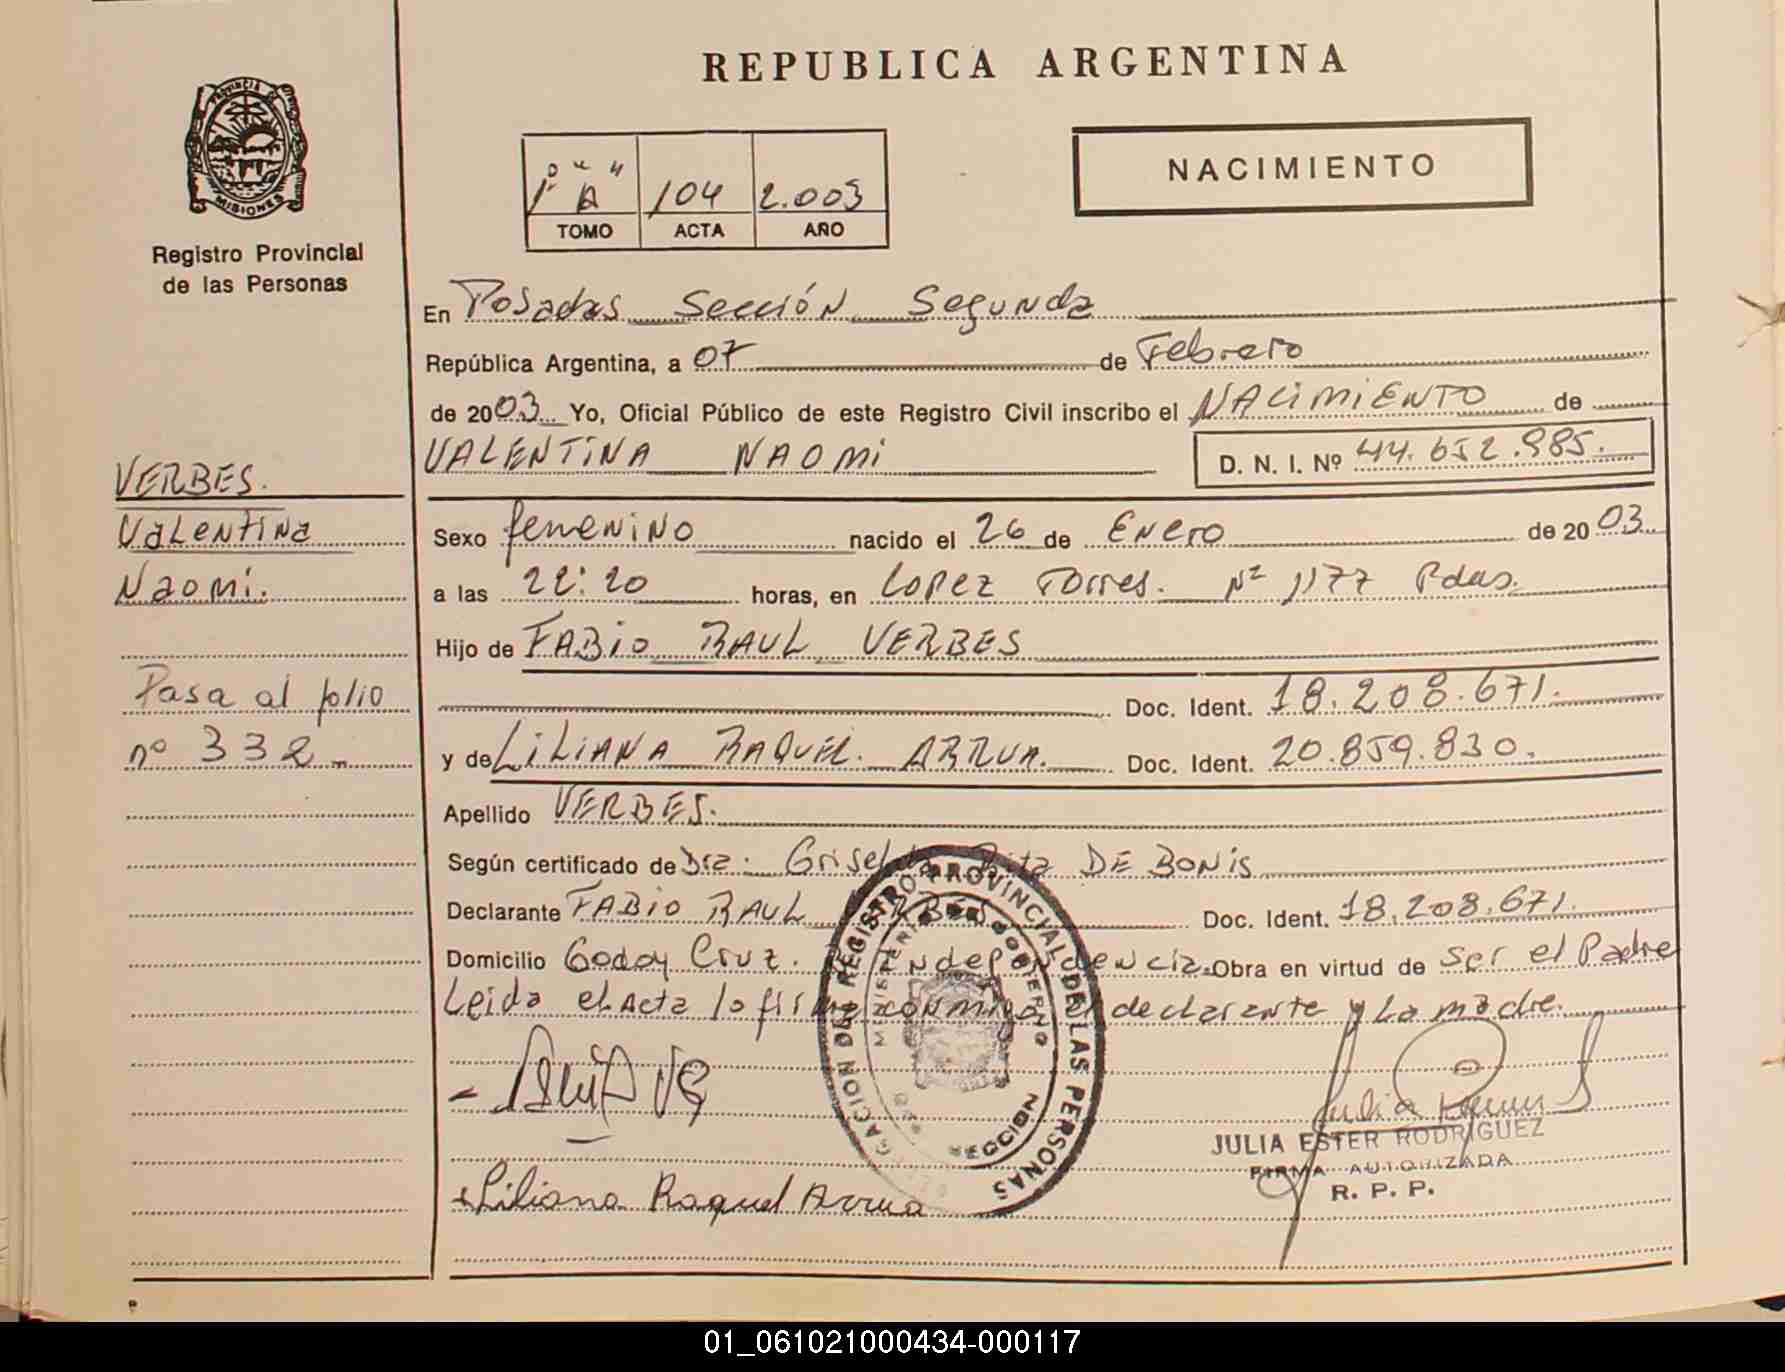 REPUBLICA ARGENTINA
PROVINCIA DE
MISIONES
Registro Provincial
de las Personas
1º "A" 104 2.003
TOMO ACTA AÑO
NACIMIENTO
En Posadas Sección Segunda
República Argentina, a 07 de Febrero
de 2003 Yo, Oficial Público de este Registro Civil inscribo el NACIMIENTO de
VALENTINA NAOMI D. N. I. Nº 44.652.985.
VERBES.
Valentina
Naomi.
Pasa al folio
nº 332
Sexo femenino nacido el 26 de Enero de 2003
a las 22:20 horas, en Lopez Torres. Nº 1177 Pdas.
Hijo de FABIO RAUL VERBES
Doc. Ident. 18.208.671.
y de LILIANA RAQUEL ARRUA. Doc. Ident. 20.859.830.
Apellido VERBES.
Según certificado de Dra. Griselda Rita DE BONIS
Declarante FABIO RAUL VERBES Doc. Ident. 18.208.671.
Domicilio Godoy Cruz. Independencia. Obra en virtud de ser el Padre
Leida el Acta la firma conmigo el declarante y La madre.
DELEGACION DEL REGISTRO PROVINCIAL DE LAS PERSONAS
MINISTERIO DE GOBIERNO
SECCION
JULIA ESTER RODRIGUEZ
FIRMA AUTORIZADA
R. P. P.
Liliana Raquel Arrua
01_061021000434-000117